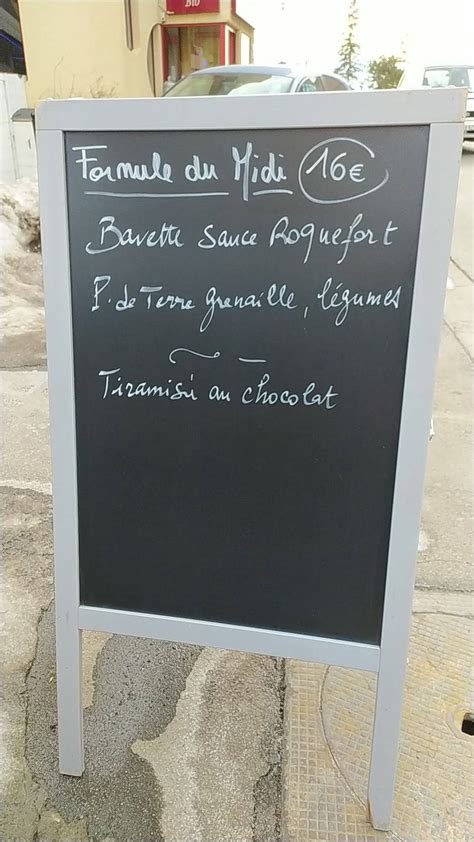 BIO
Formule du Midi 16€
Bavette sauce Roquefort
P. de Terre grenaille, légumes
Tiramisù au chocolat